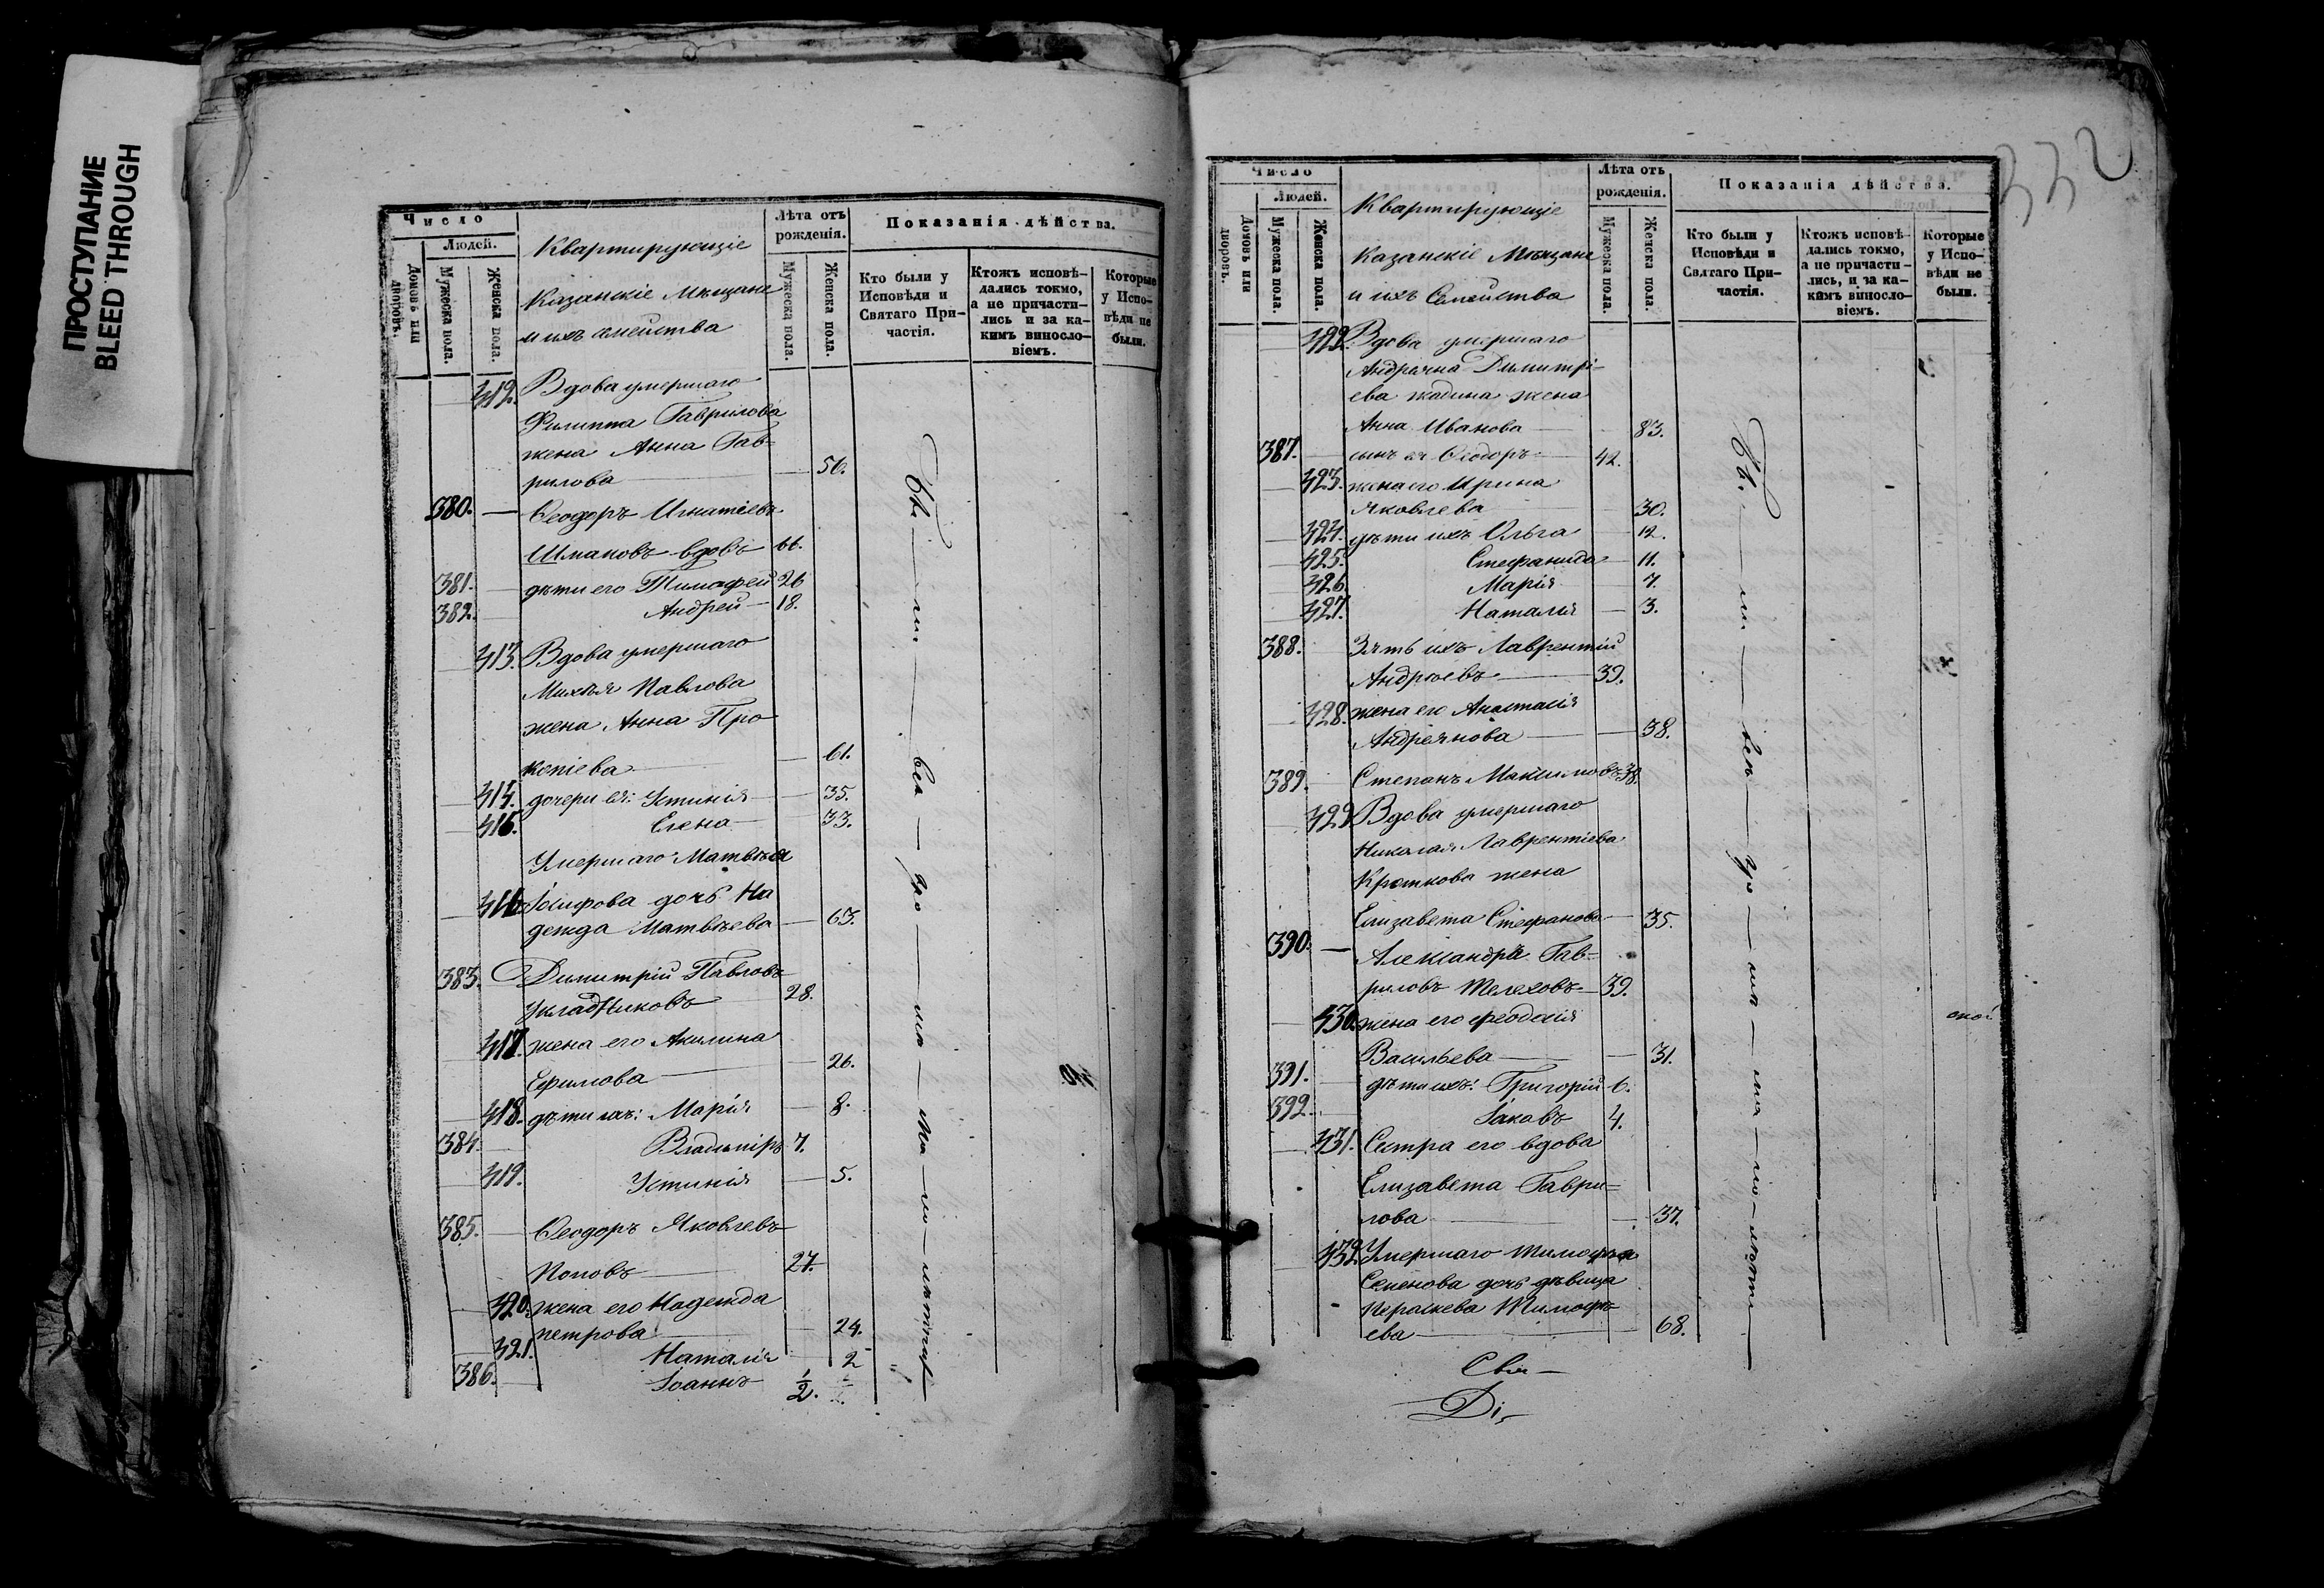 ПРОСТУПАНИЕ
BLEED THROUGH
Число
Людей.
Домовъ или дворовъ.
Мужеска пола.
Женска пола.
Квартирующіе
Казанскіе Мѣщана
и ихъ семейства
Лѣта отъ рожденія.
Мужеска пола.
Женска пола.
Показанія дѣйства.
Кто были у Исповѣди и Святаго Причастія.
Ктожъ исповѣ-
дались токмо,
а не причасти-
лись и за ка-
кимъ винносло-
віемъ.
Которые
у Испо-
вѣди не
были.
412. Вдова умершаго
Филиппа Гаврилова
жена Анна Гав-
рилова 56.
380. Ѳеодоръ Игнатіевъ
Шмаковъ вдовъ 66.
381. дѣти его Тимофей 26
382. Андрей 18.
413. Вдова умершаго
Михея Павлова
жена Анна Про
копіева 61.
414. дочери ея: Устинія 35.
415. Елена 33.
Умершаго Матвѣя
416. Іосифова дочь На
дежда Матвѣева 63.
383. Димитрій Павловъ
Укладниковъ 28.
417. жена его Акилина
Ефимова 26.
418. дѣти ихъ: Марія 8.
384. Владиміръ 7.
419. Устинія 5.
385. Ѳеодоръ Яковлевъ
Поповъ 27.
420. жена его Надежда
петрова 24.
421. Наталія 2
386. Іоаннъ 1/2.
332
Число
Людей.
Домовъ или дворовъ.
Мужеска пола.
Женска пола.
Квартирующіе
Казанскіе Мѣщане
и ихъ Семейства
Лѣта отъ рожденія.
Мужеска пола.
Женска пола.
Показанія дѣйства.
Кто были у
Исповѣди и
Святаго При-
частія.
Ктожъ исповѣ-
дались токмо,
а не причасти-
лись, и за ка-
кимъ винносло-
віемъ.
Которые
у Испо-
вѣди не
были.
422. Вдова умершаго
Андреяна Димитрі-
ева жена
Анна Иванова 83.
387. сынъ ея Ѳеодоръ 42.
423. жена его Ирина
Яковлева 30.
424. дѣти ихъ Ольга 12.
425. Стефанида 11.
426. Марія 7.
427. Наталія 3.
388. Зять ихъ Лаврентій
Андреевъ 39.
428. жена его Анастасія
Андреянова 38.
389. Степанъ Максимовъ 38.
429. Вдова умершаго
Николая Лаврентіева
Кроткова жена
Елизавета Стефанова 35.
390. Александръ Гав-
риловъ Телеховъ 39.
430. жена его Феодосія
Васильева 31.
391. дѣти ихъ: Григорій 6.
392. Іаковъ 4.
431. Сестра его вдова
Елизавета Гаври-
лова 37.
432. Умершаго Тимофея
Семенова дочь дѣвица
Параскева Тимофе-
ева 68.
Свя-
Ді-